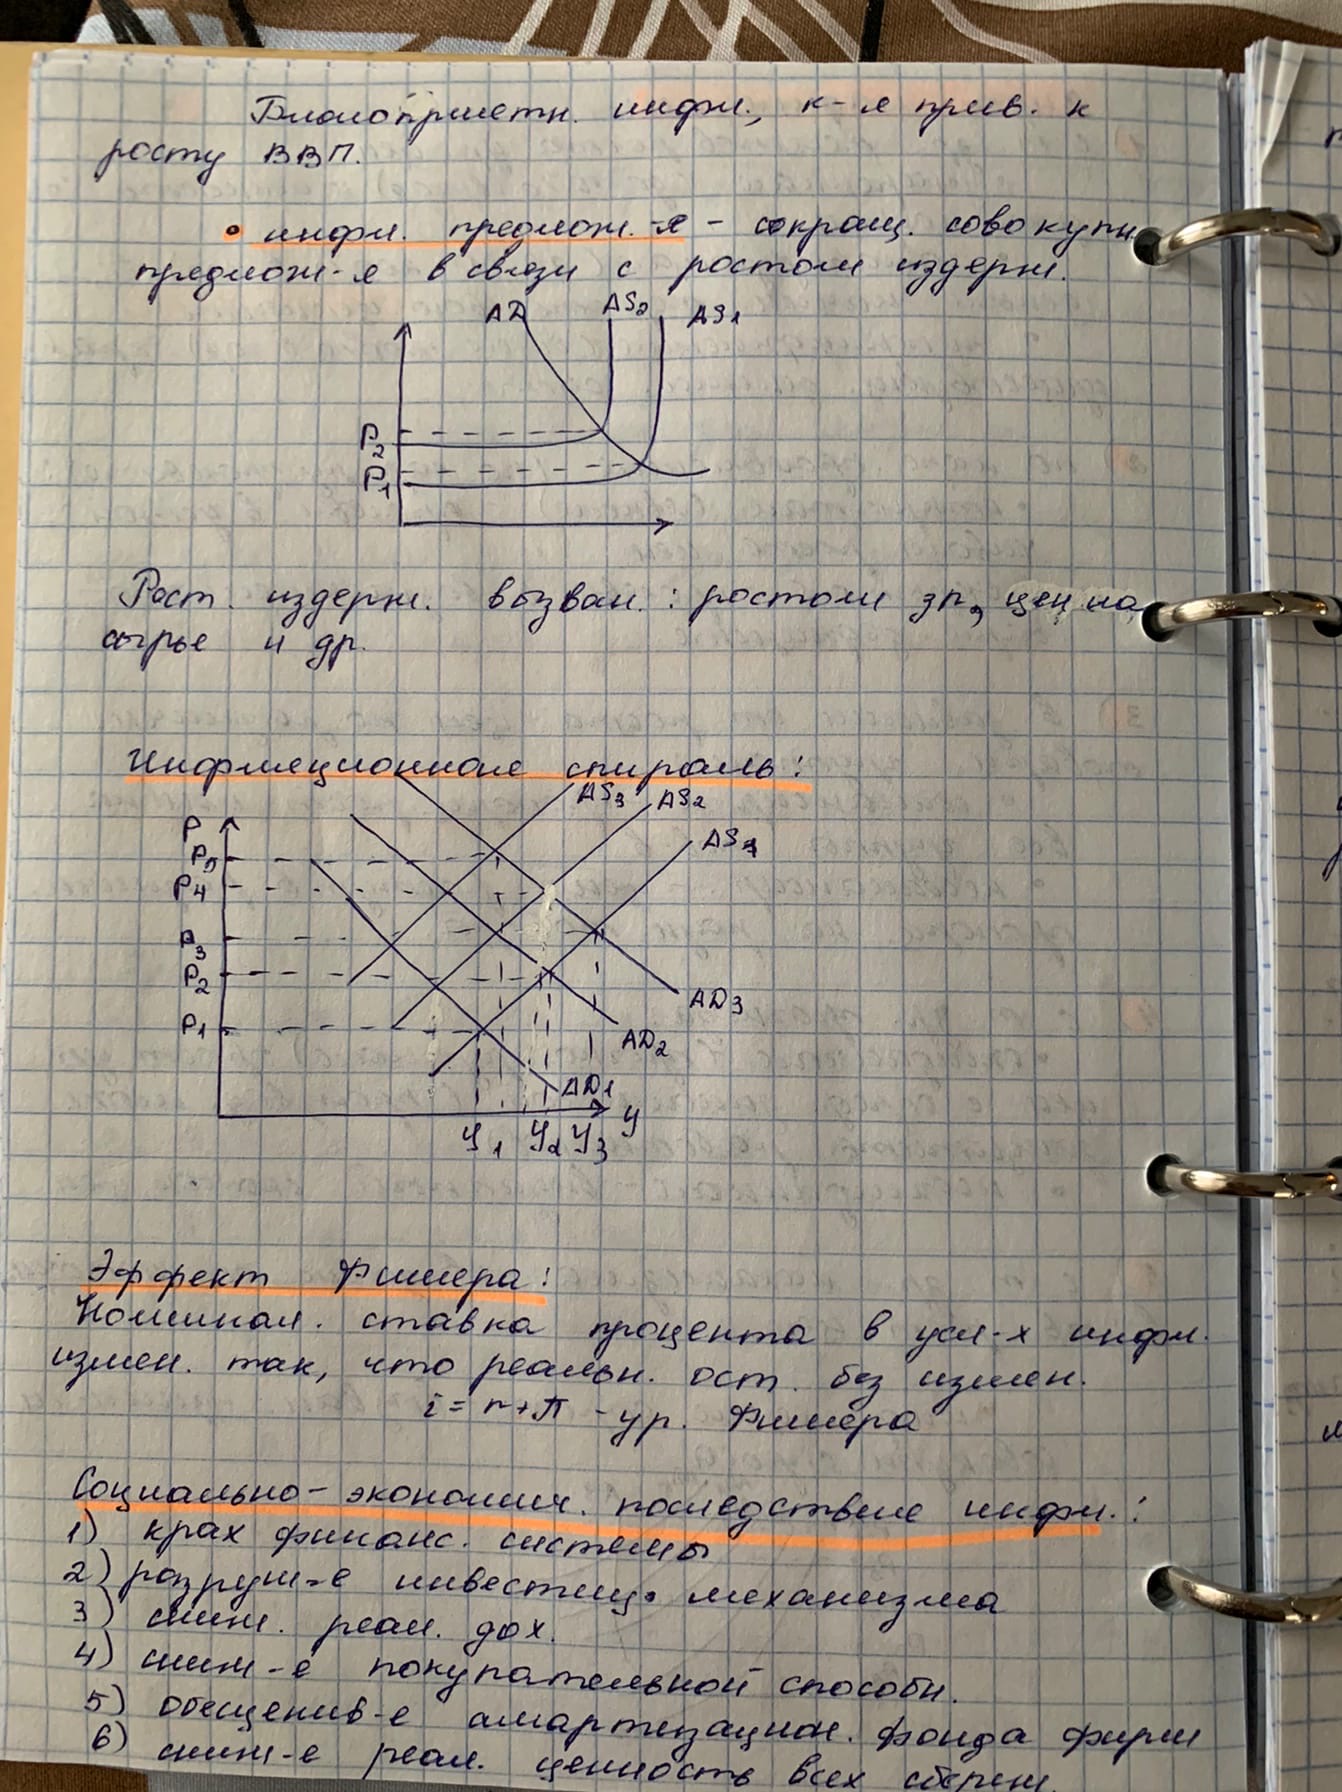 Благоприятн. инфл., к-я прив. к
росту ВВП.
• инфл. предлож-я - сокращ. совокупн.
предлож-я в связи с ростом издерж.
AD AS2 AS1
P2
P1
Рост. издерж. вызван.: ростом зп, цен на
сырье и др.
Инфляционная спираль:
AS3 AS2
P AS1
P5
P4
P3
P2
AD3
P1
AD2
AD1
y
y1 y2 y3
Эффект Фишера:
Номинал. ставка процента в усл-х инфл.
измен. так, что реальн. ост. без измен.
i = r + π - ур. Фишера
Социально-экономич. последствие инфл.:
1) крах финанс. системы
2) разруш-е инвестиц. механизма
3) сниж. реал. дох.
4) сниж-е покупательной способн.
5) обесценив-е амартизацион. фонда фирм
6) сниж-е реал. ценность всех сбереж.